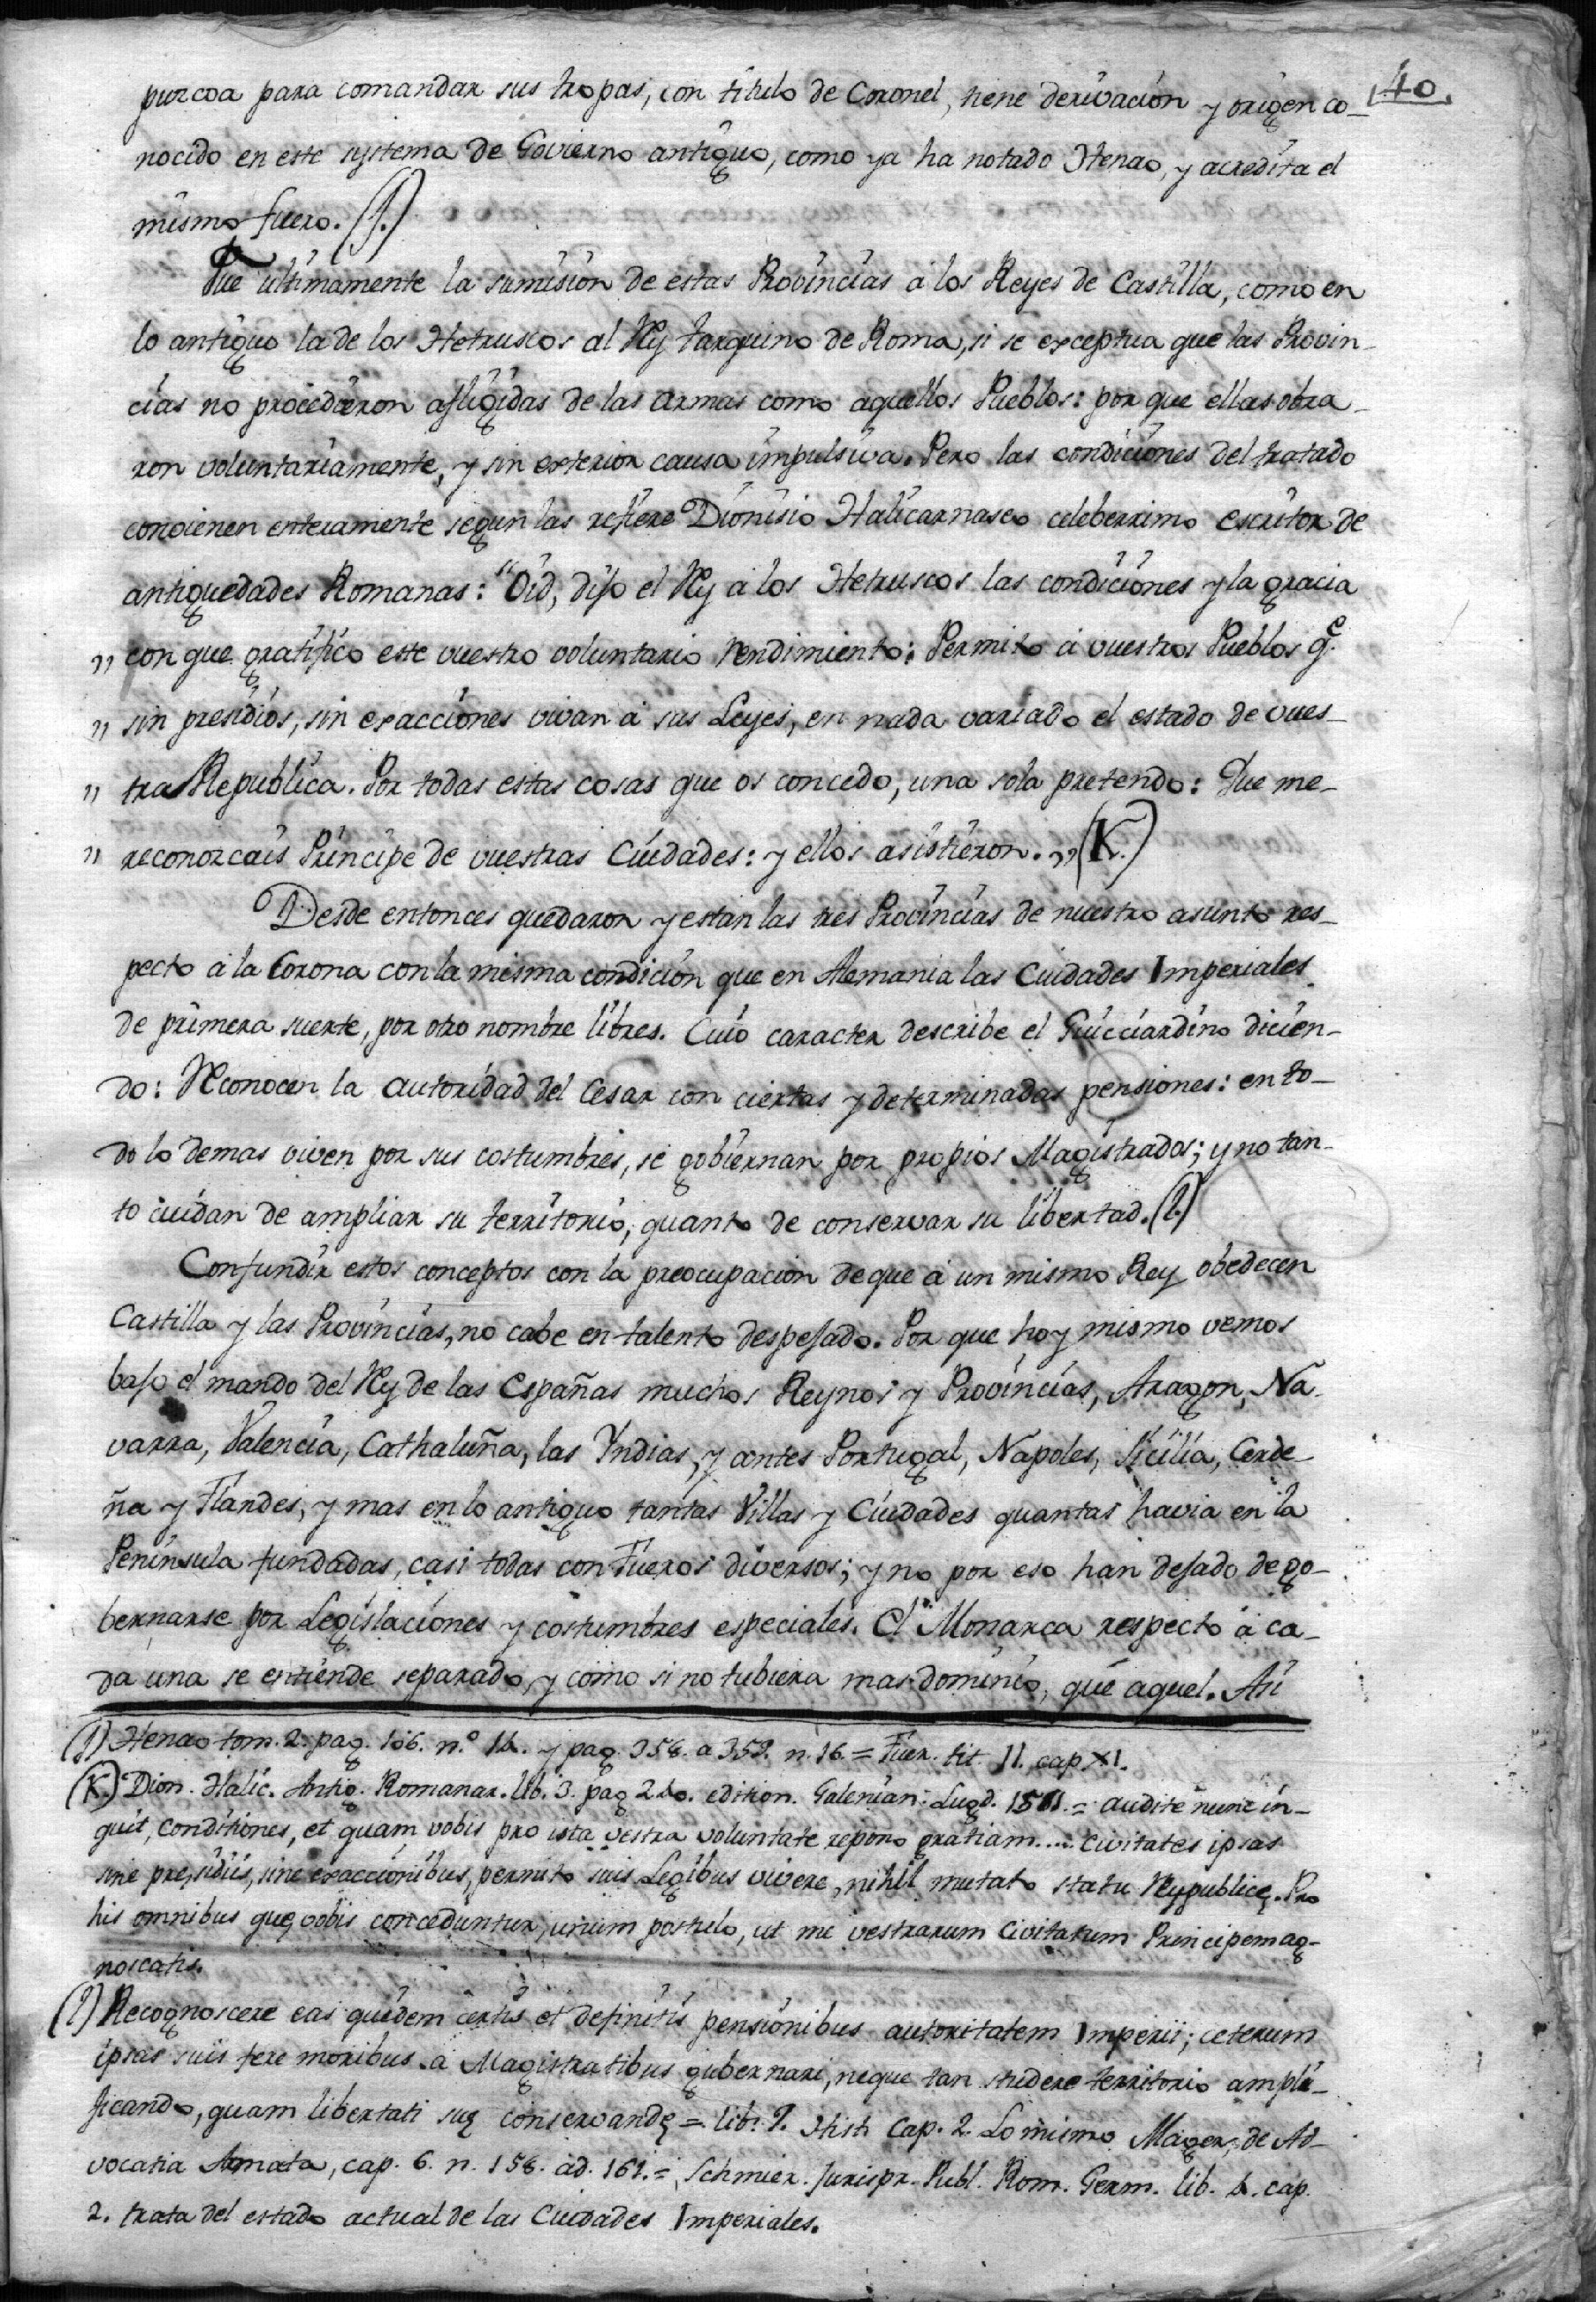 40
puzcoa para comandar sus tropas, con titulo de Coronel, tiene derivación y origen co-
nocido en este systema de Govierno antiguo, como ya ha notado Henao, y acredita el
mismo fuero. (J.)
Fue ultimamente la sumision de estas Provincias á los Reyes de Castilla, como en
lo antiguo la de los Hetruscos al Rey Tarquino de Roma, si se exceptua que las Provin-
cias no procedieron afligidas de las armas como aquellos Pueblos: por que ellas obra-
ron voluntariamente, y sin exterior causa impulsiva. Pero las condiciones del tratado
convienen enteramente segun las refiere Dionisio Halicarnaseo celeberrimo escritor de
antiguedades Romanas: "Oid, dijo el Rey á los Hetruscos las condiciones y la gracia
" con que gratifico este vuestro voluntario rendimiento: Permito á vuestros Pueblos q.e
" sin presidios, sin exacciones vivan á sus Leyes, en nada variado el estado de vues-
" tra Republica. Por todas estas cosas que os concedo, una sola pretendo: Que me-
" reconozcais Principe de vuestras Ciudades: y ellos asistieron." (K.)
Desde entonces quedaron y están las tres Provincias de nuestro asunto res-
pecto á la Corona con la misma condición que en Alemania las Ciudades Imperiales
de primera suerte, por otro nombre libres. Cuio caracter describe el Guicciardino dicien-
do: Reconocen la autoridad del Cesar con ciertas y determinadas pensiones: en to-
do lo demas viven por sus costumbres, se gobiernan por propios Magistrados; y no tan-
to cuidan de ampliar su territorio, quanto de conservar su libertad. (l.)
Confundir estos conceptos con la preocupacion de que á un mismo Rey obedecen
Castilla y las Provincias, no cabe en talento despejado. Por que hoy mismo vemos
bajo el mando del Rey de las Españas muchos Reynos y Provincias, Aragon, Na-
varra, Valencia, Cathaluña, las Yndias, y antes Portugal, Napoles, Sicilia, Cerde-
ña y Flandes, y mas en lo antiguo tantas Villas y Ciudades quantas havia en la
Peninsula fundadas, casi todas con Fueros diversos; y no por eso han dejado de go-
bernarse por Legislaciones y costumbres especiales. El Monarca respecto á ca-
da una se entiende separado, y como si no tubiera mas dominio, que aquel. Asi
(J) Henao tom. 2. pag. 106. n.º 14. y pag. 358. a 359. n. 16. = Fuer. tit. 11. cap. XI.
(K.) Dion. Halic. Antiq. Romanar. lib. 3. pag 240. edition. Galenian: Lugd. 1561. = audite nunc in-
quit, conditiones, et quam vobis pro ista vestra voluntate repono gratiam.... civitates ipsas
sine presidiis, sine exaccionibus, permito suis Legibus vivere, nihil mutato statu Reypublicę. Pro
his omnibus quę vobis conceduntur, unum postulo, ut me vestrarum Civitatum Principem ag-
noscatis.
(l) Recognoscere eas quidem certis et definitis pensionibus autoritatem Imperii; ceterum
ipsas suis fere moribus a Magistratibus gubernari, neque tan studere territorio ampli-
ficando, quam libertati suę conservandę = lib. 7. Hist. Cap. 2. Lo mismo Mager, de Ad-
vocatia Armata, cap. 6. n. 158. ad. 161. = Schmier. Jurispr. Publ. Rom. Germ. lib. 4. cap.
2. trata del estado actual de las Ciudades Imperiales.